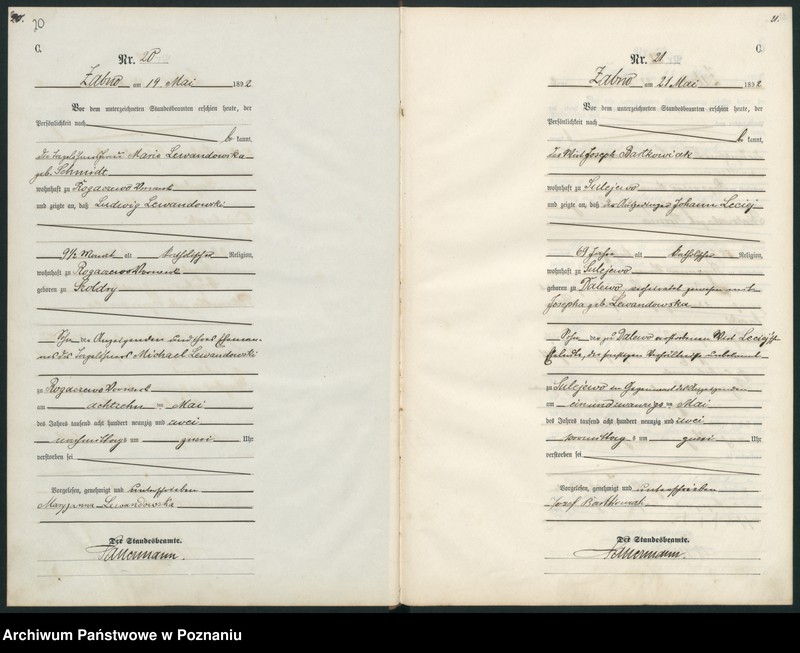 20.
20
C.
Nr. 20
Żabno am 19 Mai 1892
Vor dem unterzeichneten Standesbeamten erschien heute, der
Persönlichkeit nach
be kannt,
die Tagelöhnerfrau Marie Lewandowska
geb. Schmidt
wohnhaft zu Rogaczewo Vorwerk
und zeigte an, daß Ludwig Lewandowski
9 1/2 Monat alt katholischer Religion,
wohnhaft zu Rogaczewo Vorwerk
geboren zu
Sohn der Anzeigenden und ihres Eheman-
nes des Tagelöhners Michael Lewandowski
zu Rogaczewo Vorwerk
am achtzehn ten Mai
des Jahres tausend acht hundert neunzig und zwei
nachmittags um zwei Uhr
verstorben sei
Vorgelesen, genehmigt und unterschrieben
Maryjanna Lewandowska
Der Standesbeamte.
21.
C.
Nr. 21
Żabno am 21 Mai 1892
Vor dem unterzeichneten Standesbeamten erschien heute, der
Persönlichkeit nach
be kannt,
der Wirt Joseph Bartkowiak
wohnhaft zu Sulejewo
und zeigte an, daß der Johann Leciej
69 Jahre alt katholischer Religion,
wohnhaft zu Sulejewo
geboren zu Dalewo, verheiratet gewesen mit
Josepha geb. Lewandowska
Sohn der zu Dalewo verstorbenen Wirt Leciej'schen
Eheleute, der sonstigen Verhältnisse unbekannt
zu Sulejewo in Gegenwart des Anzeigenden
am einundzwanzigs ten Mai
des Jahres tausend acht hundert neunzig und zwei
vormittag s um zwei Uhr
verstorben sei
Vorgelesen, genehmigt und unterschrieben
Jozef Bartkowiak
Der Standesbeamte.
Archiwum Państwowe w Poznaniu